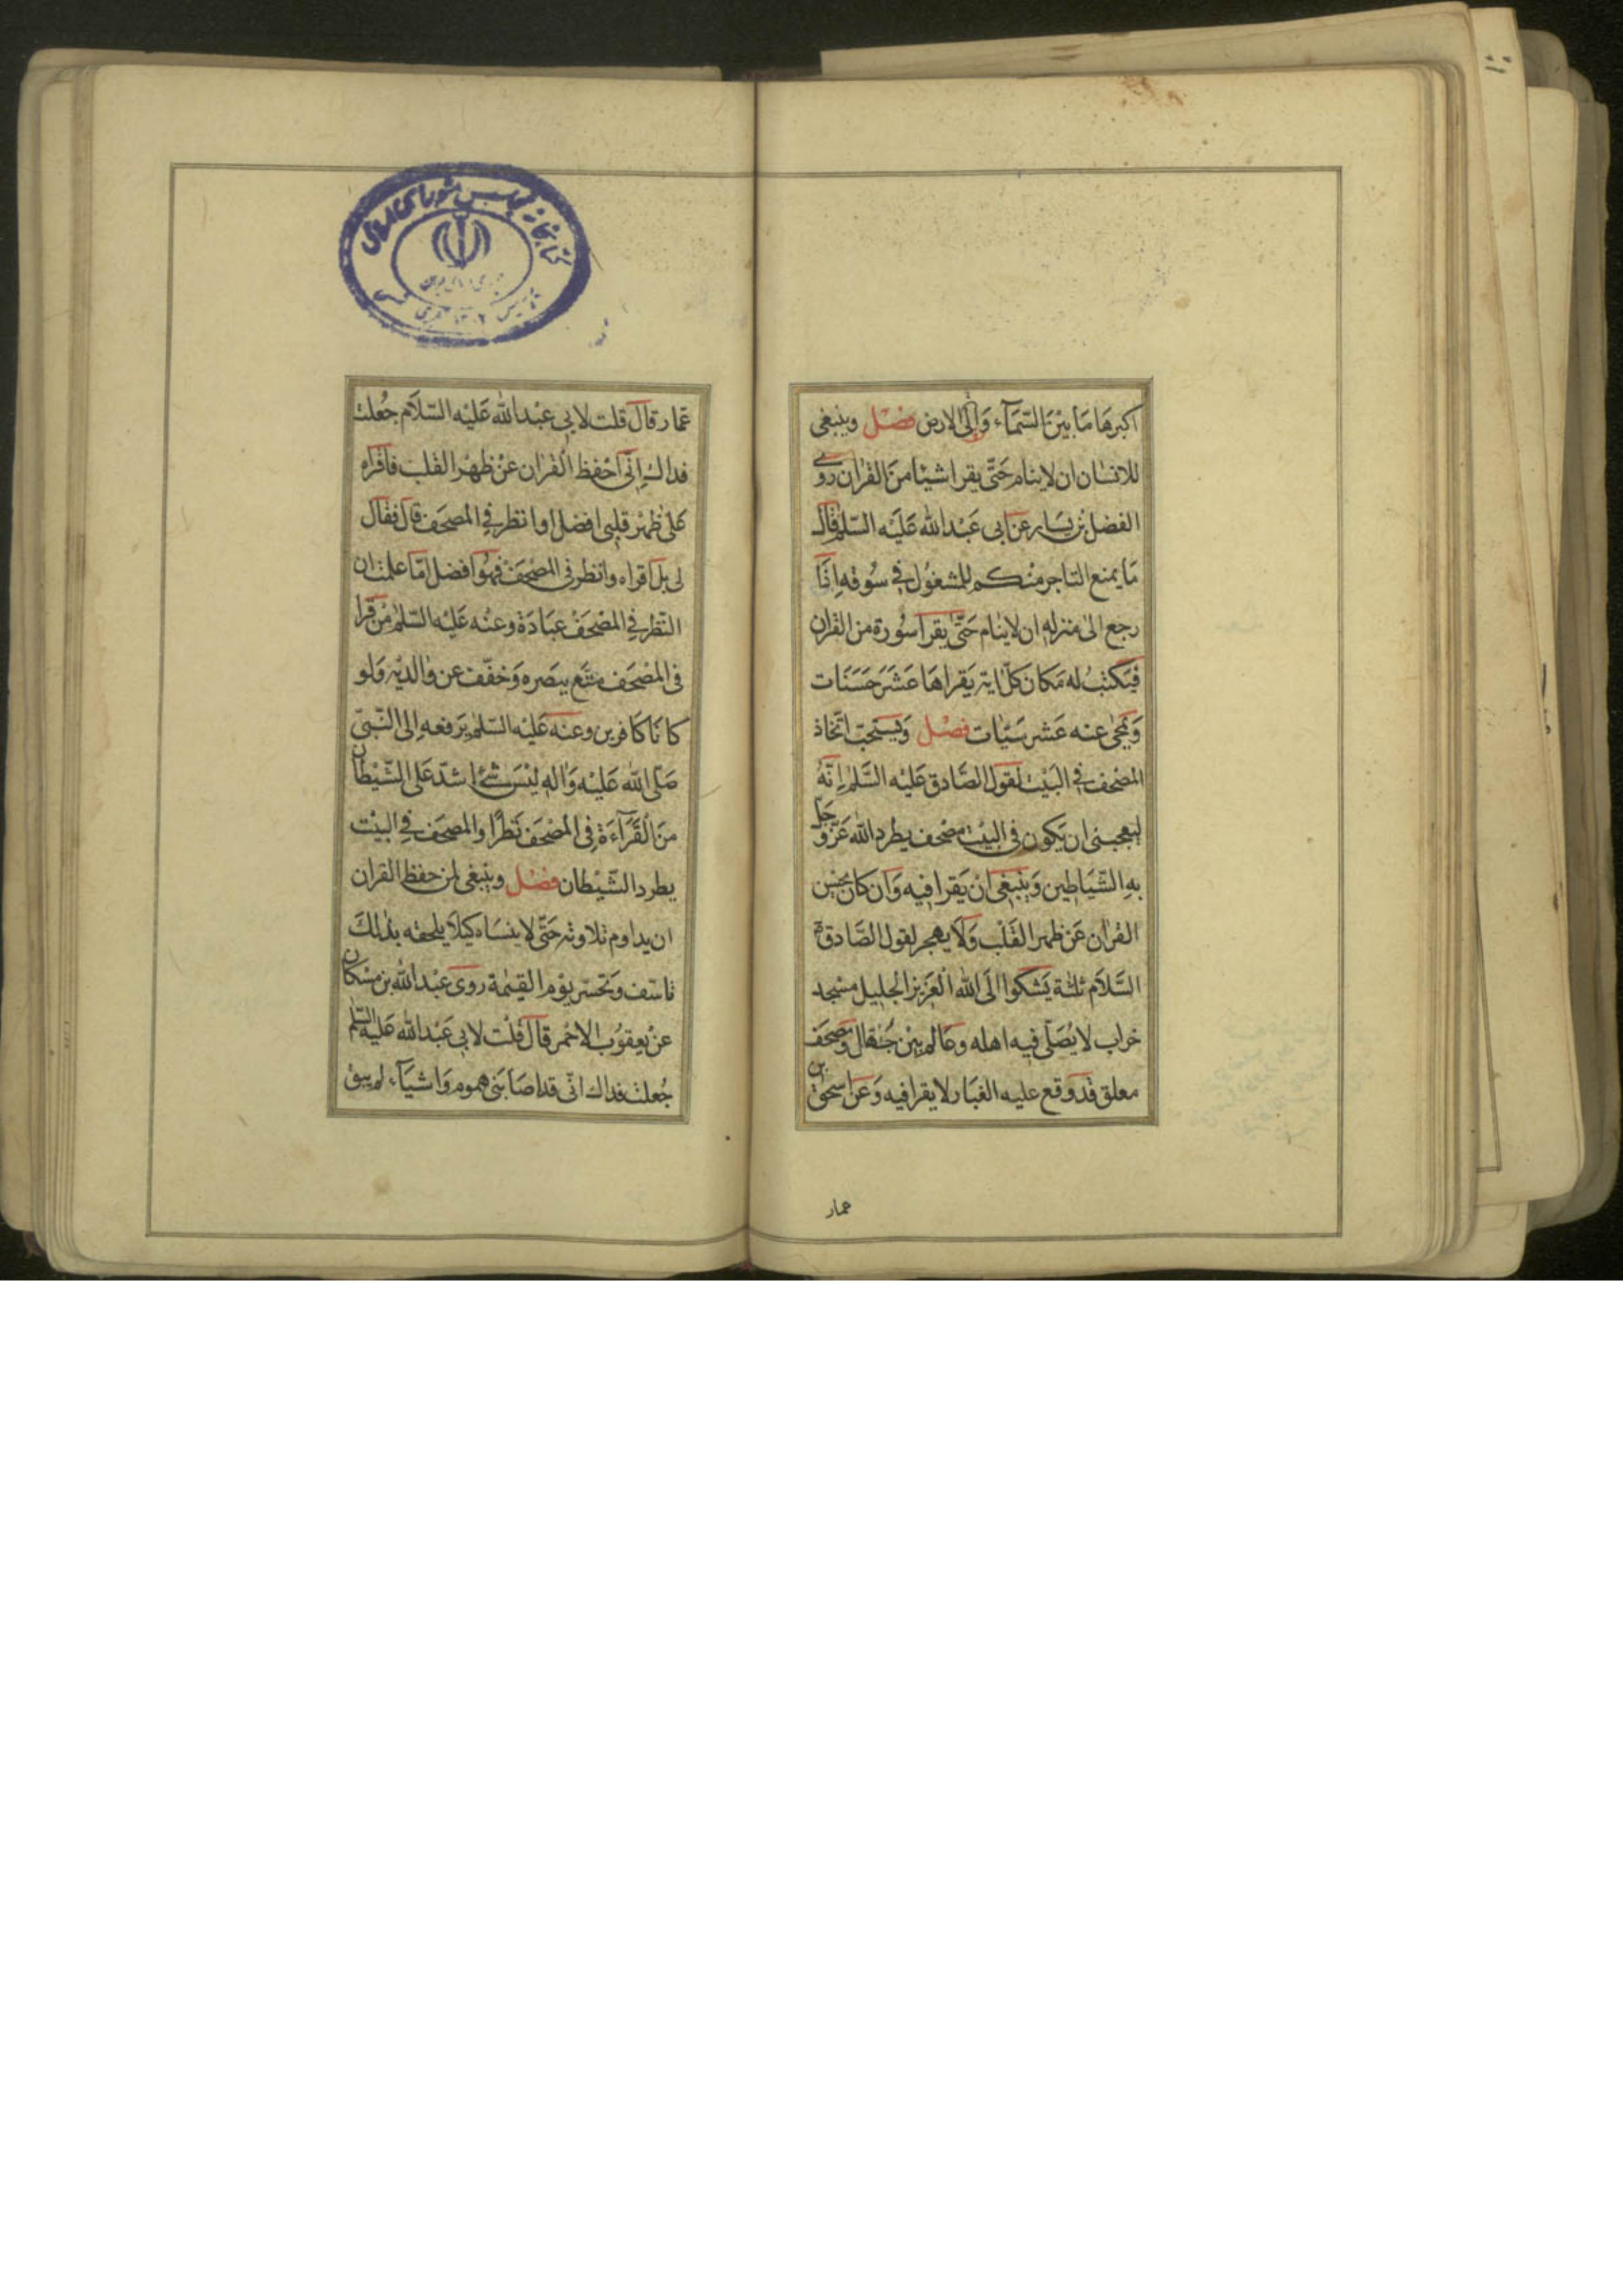 اكبرها ما بَيْنَ السَّمَآء وَاِلَى الارض فصْل وينبغى
للانسان ان لا ينام حَتّى يقرا شيئا منَ القران روى
الفضل بن يسار عن ابى عَبْد الله عَلَيْه السّلم قال
مَا يمنع التاجر منكم المشغوُل فى سُوقه اِذا
رجع الى منزله ان لا ينام حَتّى يقرا سُورة من القران
فيَكتبُ له مَكان كلّ اية يَقراها عَشرَ حَسَنات
وَيمحى عنه عَشر سَيّئات فصْل وَيستحبّ اتّخاذ
المصْحف فى البَيْت لقول الصّادق عَلَيْه السَّلم اِنّهُ
ليعجبنى ان يَكون فى البيْت مصْحف يطرد الله عَزّ وَجلّ
بهِ الشّيَاطين وَينْبَغى انْ يَقرا فيه وَان كان يحسن
القران عَن ظهر القَلْب وَلا يهجر لقول الصَّادق ع
السَّلام ثلثة يَشكوا الَى الله العَزيز الجليل مسْجد
خراب لا يُصَلّى فيه اهله وعَالم بيْن جُهّال ومصحَف
معلق قد وقع عليه الغبَار لا يقرا فيه وَعَن اسحق بن
عمار
عمّار قال قلت لابى عبْد الله عَليْه السّلام جُعلت
فداك اِنّى احْفظ القران عنْ ظهْر القلب فاقراه
عَلى ظهْر قلبى افضل او انظر فى المصحَف قال فقال
لى بل اقراه وانظر فى المصْحَف فهُوَ افضل امَا علمْت ان
النّظر فى المصْحَف عبَادَة وعنْه عَليْه السّلم منْ قرا
فى المصْحَف متّع ببَصره وَخفّف عن والديْه وَلو
كانَا كافرين وعنه عَليْه السّلم يرَفعه اِلى النّبىّ
صَلى الله عَليْه وَاله ليْسَ شئ اشدّ عَلى الشّيْطان
منَ القرَآءَة فى المصْحَف نَظرًا والمصحَف فى البيْت
يطرد الشّيْطان فصْل وينبغى لمن حفظ القران
ان يداوم تلاوته حَتّى لا ينسَاه كيلا يلحقه بذلكَ
تاسّف وَتحسّر يوْم القيٰمة روى عبْد الله بن مسْكان
عنْ يعقوُب الاحْمر قال قلْت لابى عَبْد الله عَليْه السّلم
جُعلت فداك انّى قد اصَابَتنى هموم وَاشيَآء لم يبق